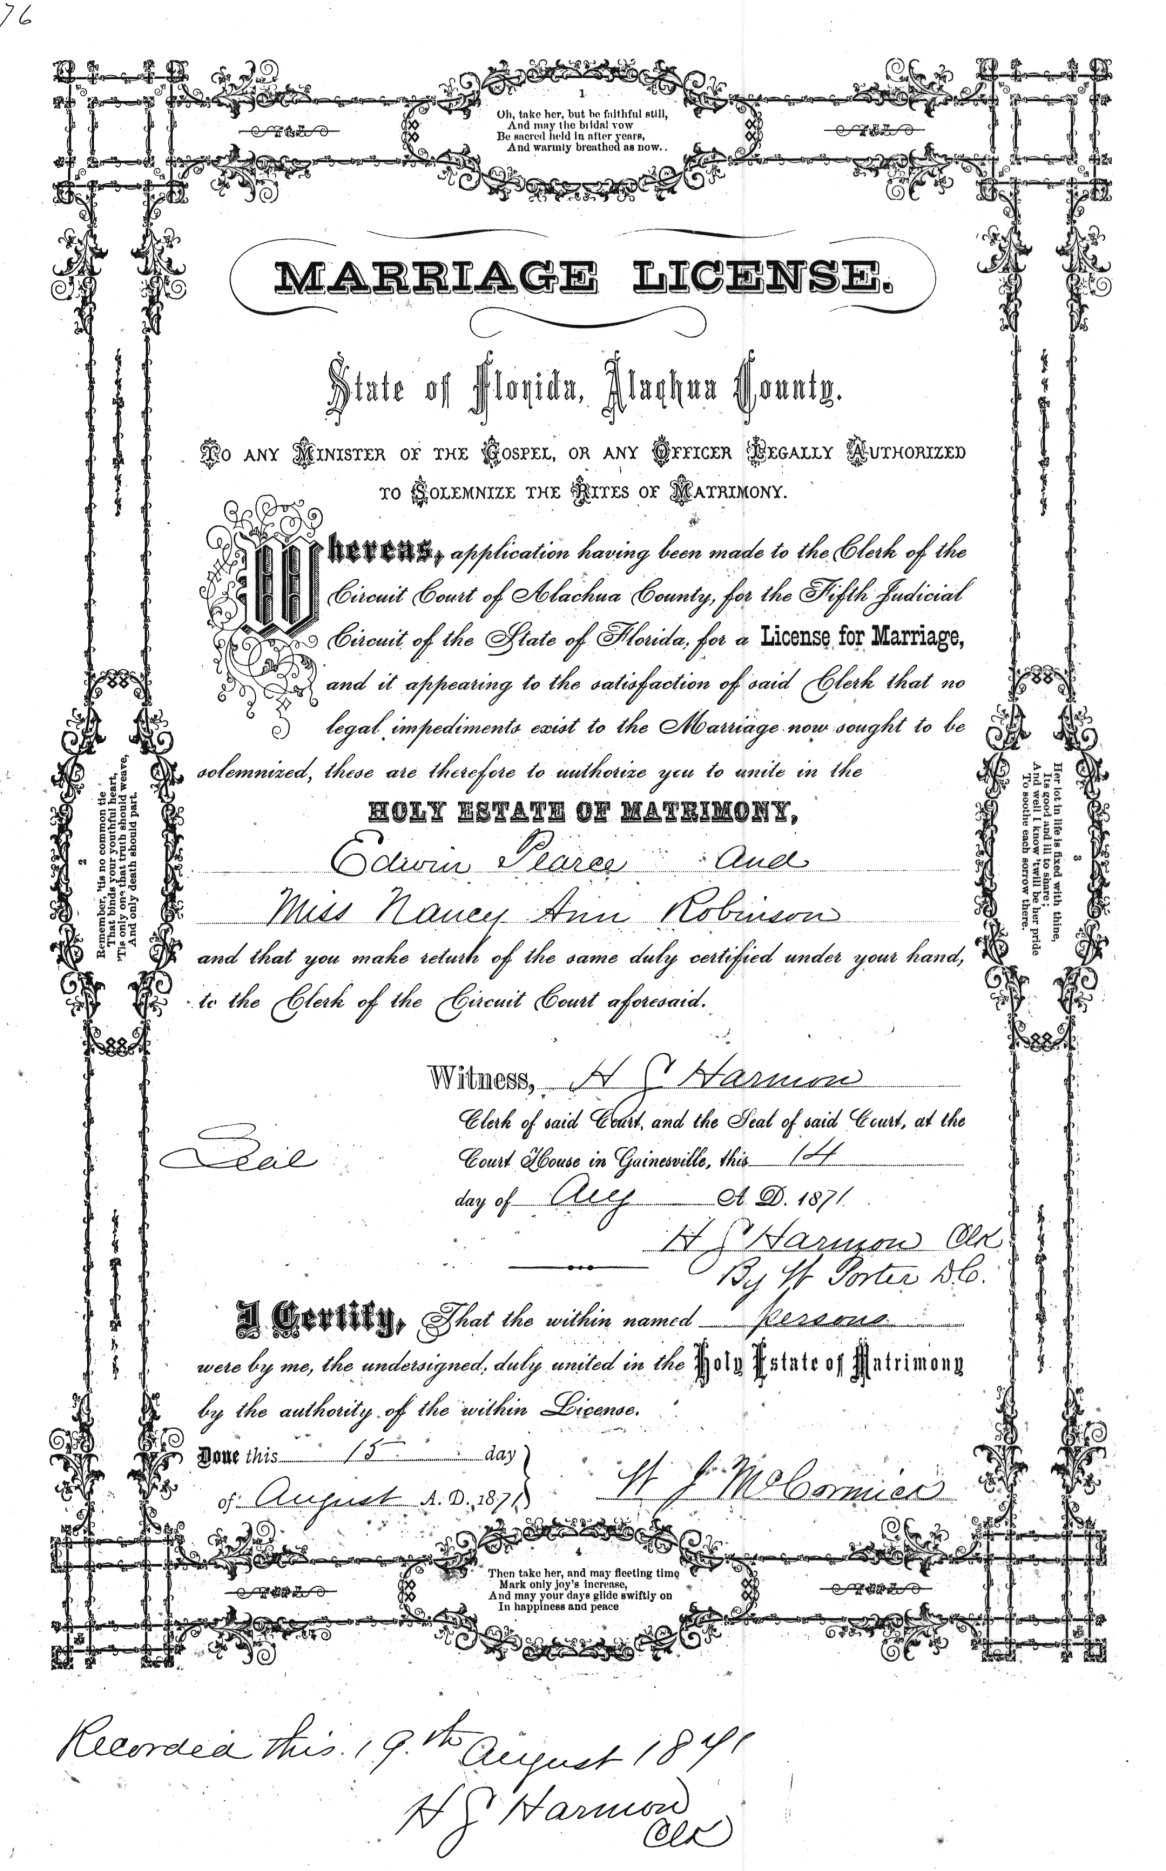 76
1
Oh, take her, but be faithful still,
And may the bridal vow
Be sacred held in after years,
And warmly breathed as now..
MARRIAGE LICENSE.
State of Florida, Alachua County.
TO ANY MINISTER OF THE GOSPEL, OR ANY OFFICER LEGALLY AUTHORIZED
TO SOLEMNIZE THE RITES OF MATRIMONY.
Whereas, application having been made to the Clerk of the
Circuit Court of Alachua County, for the Fifth Judicial
Circuit of the State of Florida, for a License for Marriage,
and it appearing to the satisfaction of said Clerk that no
legal impediments exist to the Marriage now sought to be
solemnized, these are therefore to authorize you to unite in the
HOLY ESTATE OF MATRIMONY,
Edwin Pearce and
Miss Nancy Ann Robinson
and that you make return of the same duly certified under your hand,
to the Clerk of the Circuit Court aforesaid.
2
Remember, 'tis no common tie
That binds your youthful heart,
'Tis only one that truth should weave,
And only death should part.
3
Her lot in life is fixed with thine,
Its good and ill to share;
And well I know 'twill be her pride
To soothe each sorrow there.
Witness, H S Harmon
Clerk of said Court, and the Seal of said Court, at the
Seal
Court House in Gainesville, this 14
day of Aug A. D. 1871.
H S Harmon Clk
By W Porter D.C.
I Certify, That the within named persons
were by me, the undersigned, duly united in the Holy Estate of Matrimony
by the authority of the within License.
Done this 15 day
of August A. D., 1871
W J McCormick
4
Then take her, and may fleeting time
Mark only joy's increase,
And may your days glide swiftly on
In happiness and peace
Recorded this 19th August 1871
H S Harmon
Clk